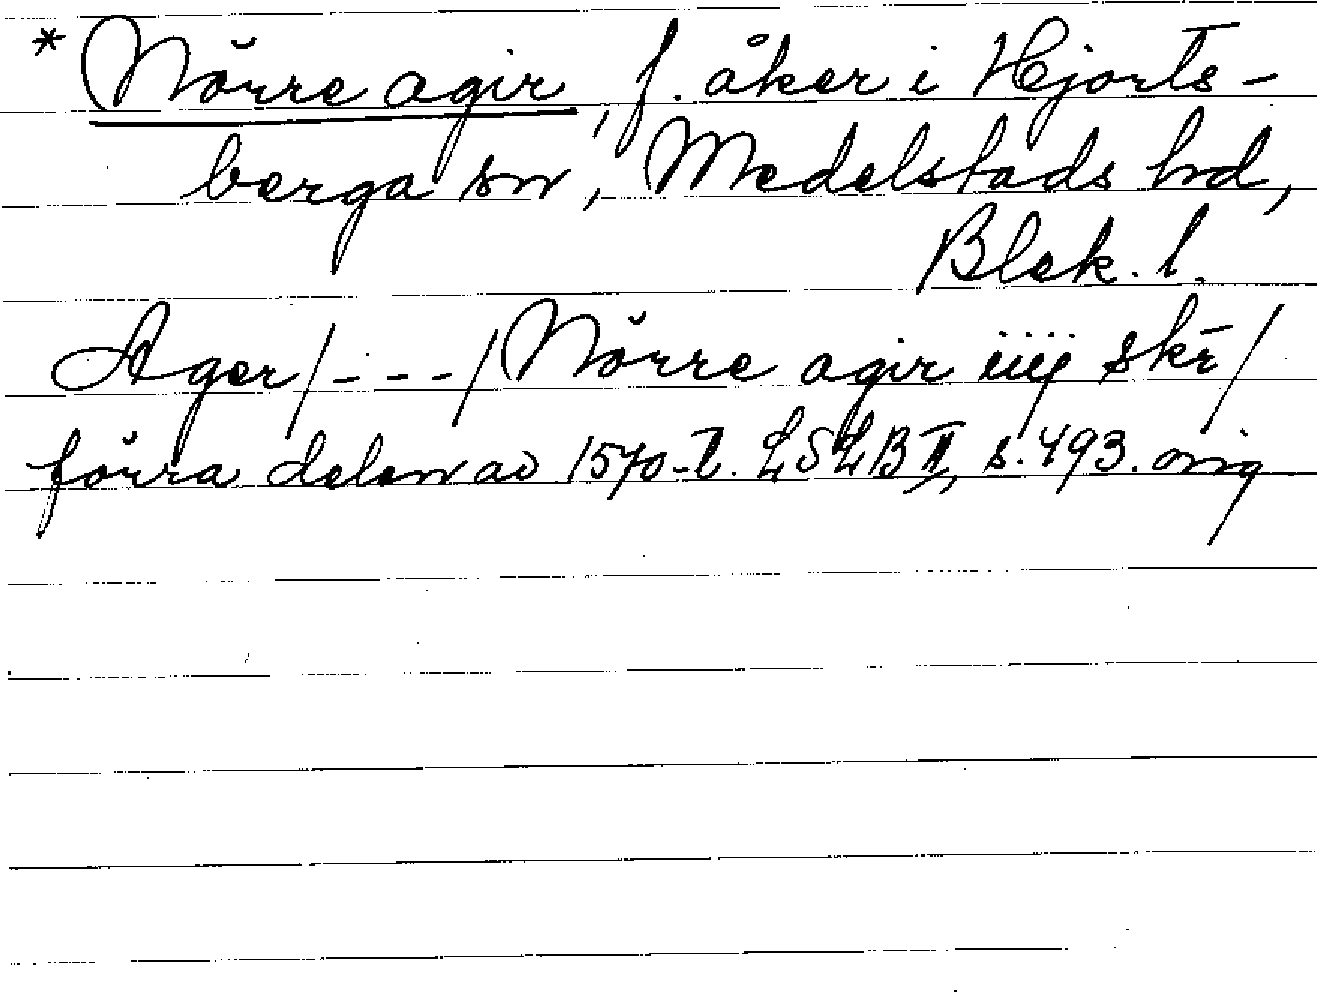 * Nörre agir, f. åker i Hjorts-
berga sn, Medelstads hd,
Blek. l.
Ager/---/Nörre agir iiij skr̄/
förra delen av 1570-t. LSLB II, s. 493. orig